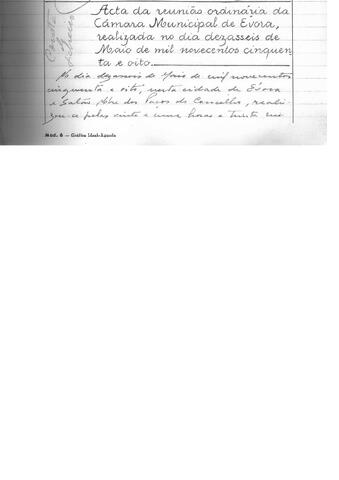 Acta da reunião ordinária da
Câmara Municipal de Evora,
realizada no dia dezasseis de
Maio de mil novecentos cinquen
ta e oito.
Ao dia dezasseis de Maio de mil novecentos
cinquenta e oito, nesta cidade de Évora
e Salão Nobre dos Paços do Concelho, reali-
zou-se pelas vinte e uma horas e trinta mi
Mod. 6 — Gráfica Ideal-Agueda